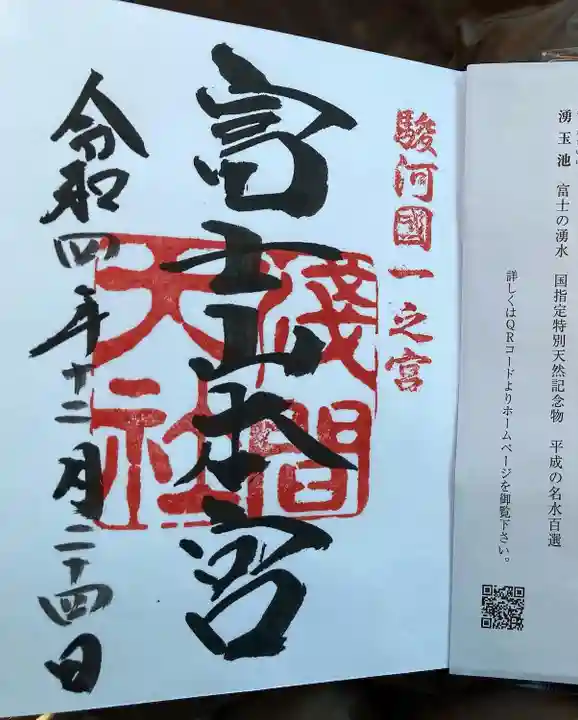 湧玉池 富士の湧水 国指定特別天然記念物 平成の名水百選
詳しくはQRコードよりホームページを御覧下さい。
駿河國一之宮
富士山本宮
淺間
天社
令和四年十二月二十四日